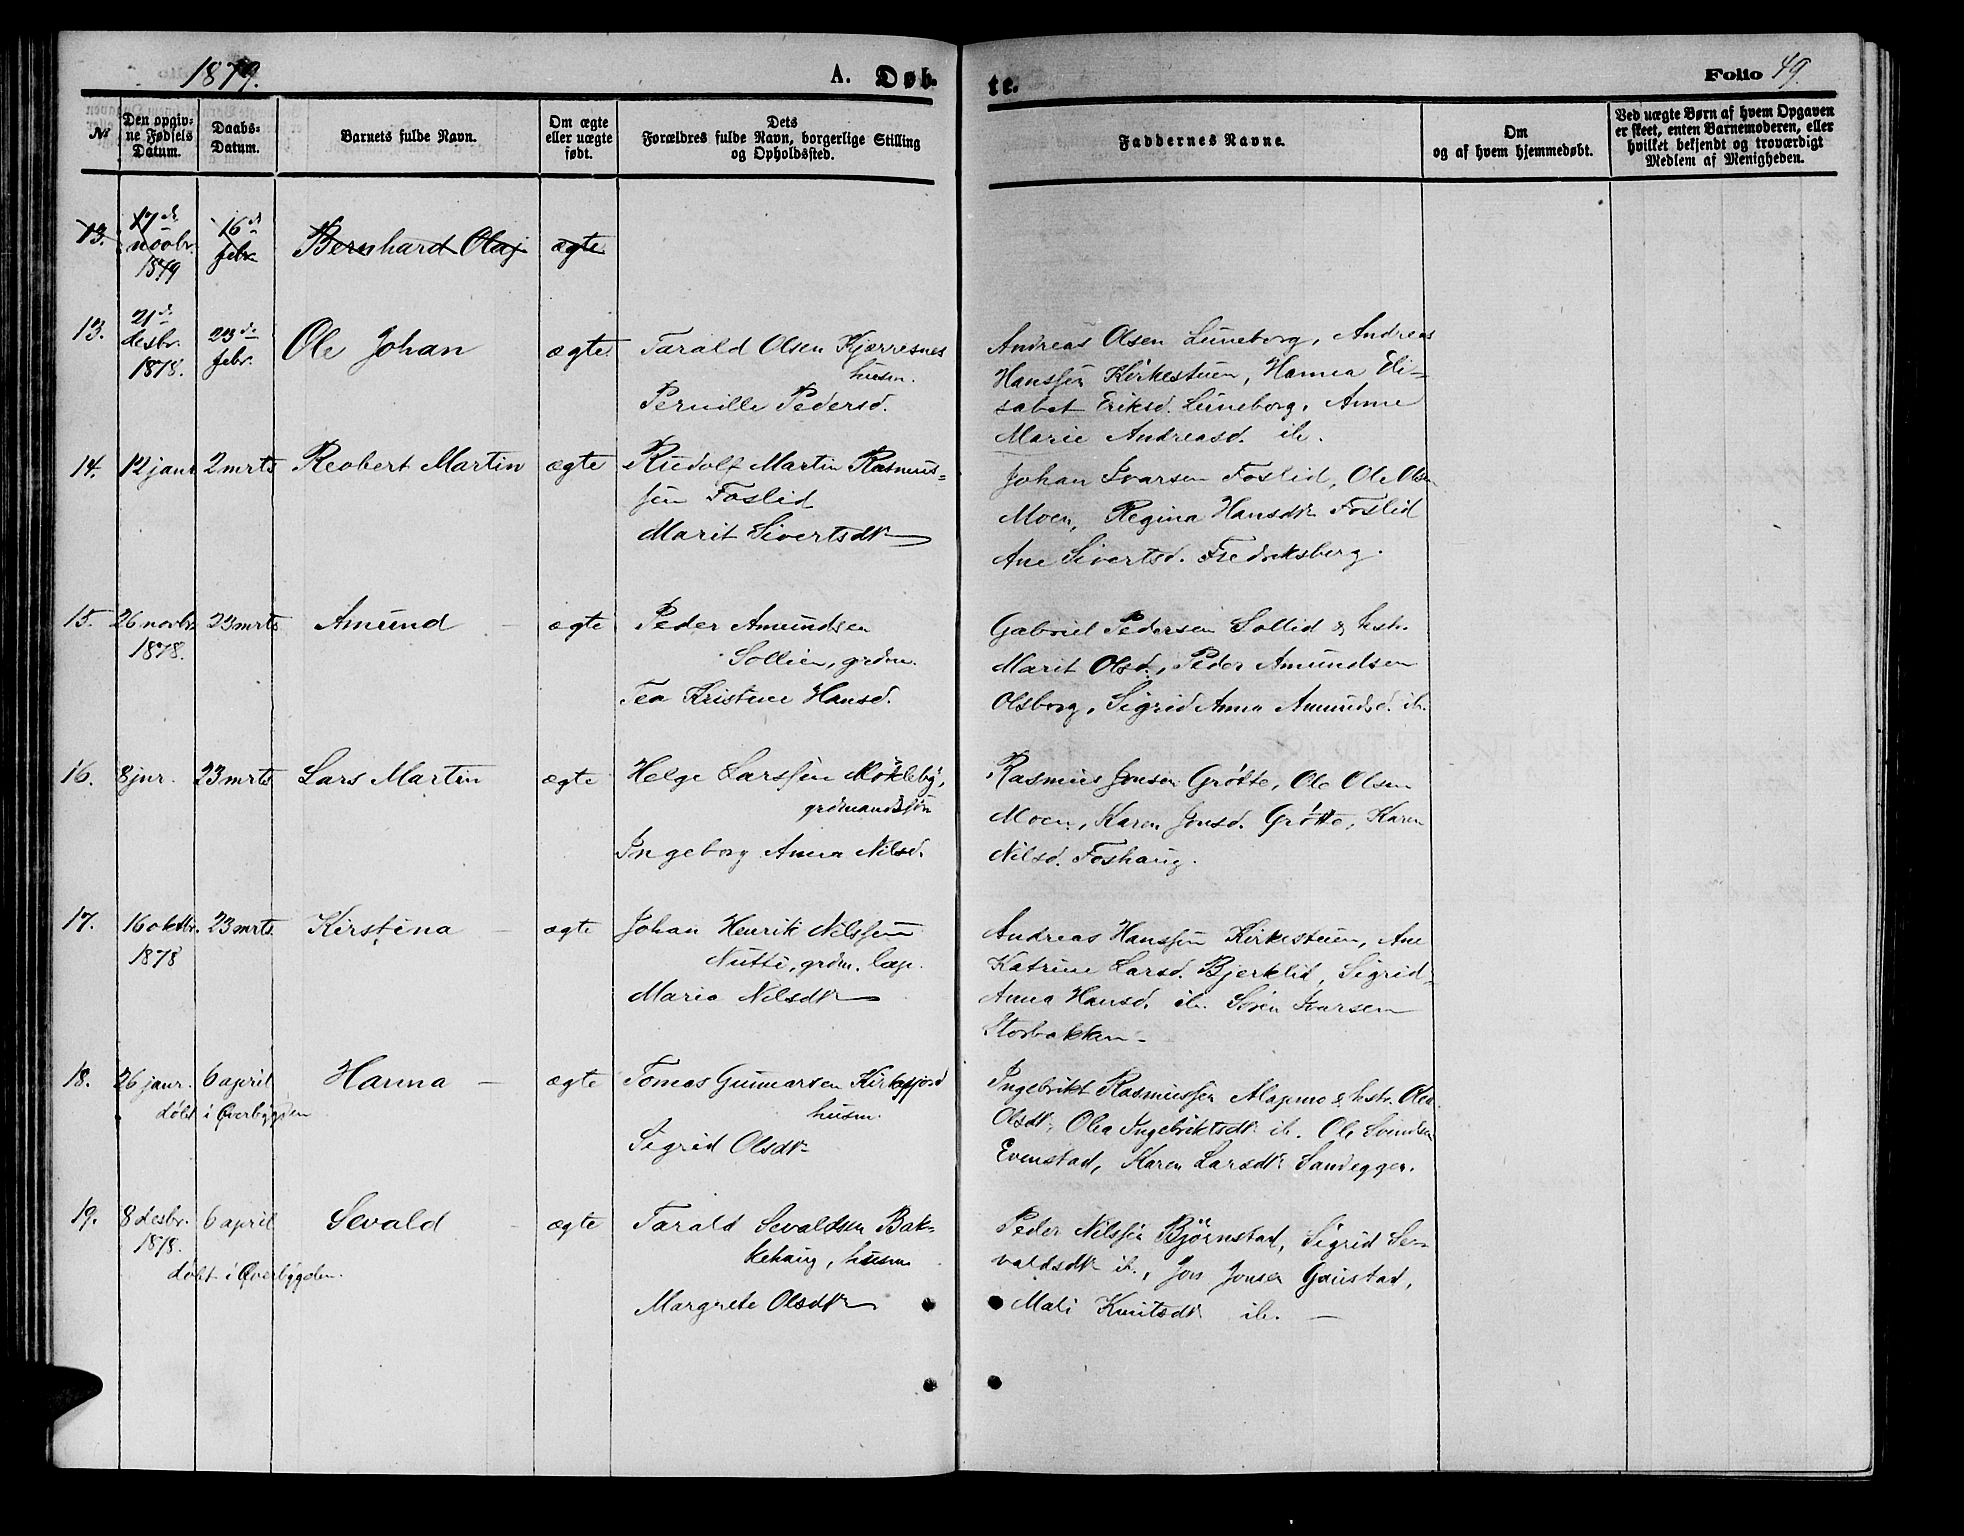 1879.
A. Døb-
te.
Folio 49.
No
Den opgiv-
ne Fødsels
Datum.
Daabs-
Datum.
Barnets fulde Navn.
Om ægte
eller uægte
født.
Dets
Forældres fulde Navn, borgerlige Stilling
og Opholdssted.
Faddernes Navne.
Om
og af hvem hjemmedøbt.
Ved uægte Børn af hvem Opgaven
er skeet, enten Barnemoderen, eller
hvilket bekjendt og troværdigt
Medlem af Menigheden.
13.
17 de
novbr.
1879
16 de
febr
Bernhard Olaf
ægte
13.
21 de
desbr.
1878.
23 de
febr.
Ole Johan
ægte
Tarald Olsen Kjærresnes
husm.
Pernille Pedersd.
Andreas Olsen Luneborg, Andreas
Hanssen Kirkestuen, Hanna Eli-
sabet Eriksd. Luneborg, Anne
Marie Andreasd. ib.
14.
12 janr
2 mrts
Reobert Martin
ægte
Rudolf Martin Rasmus-
sen Foslid
Marit Sivertsdtr
Johan Ivarsen Foslid, Ole Olsen
Moen, Regina Hansdtr Foslid
Ane Sivertsd. Fredriksberg.
15.
26 novbr
1878.
23 mrts
Amund
ægte
Peder Amundsen
Sollien, grdm.
Tea Kristine Hansd.
Gabriel Pedersen Sollid & hstr.
Marit Olsd., Peder Amundsen
Olsborg, Sigrid Anna Amundsd. ib.
16.
8 jnr.
23 mrts
Lars Martin
ægte
Helge Larssen Mökleby,
grdmandssøn
Ingeborg Anna Nilsd.
Rasmus Jonsen Grøtte, Ole Olsen
Moen, Karen Jonsd. Grøtte, Karen
Nilsd. Foshaug.
17.
16 oktbr.
1878
23 mrts
Kirstina
ægte
Johan Henrik Nilssen
Nutti, grdm. lap.
Maria Nilsdtr
Andreas Hanssen Kirkestuen, Ane
Katrine Larsd. Bjerklid, Sigrid
Anna Hansd. ib. Sören Ivarsen
Storbakken
18.
26 janr.
6 april
Hanna
ægte
døbt i Øverbygden
Tomas Gunnarsen Kirkefjord
husm.
Sigrid Olsdtr
Ingebrikt Rasmussen Alapmo & hstr. Olea
Olsdtr, Olea Ingebriktsdtr ib. Ole Svendsen
Evenstad, Karen Larsdtr Sandeggen.
19.
8 desbr.
1878.
6 april
Sevald
ægte
døbt i Øverbygden.
Tarald Sevaldsen Bak-
kehaug, husm
Margrete Olsdtr
Peder Nilssen Björnstad, Sigrid Se-
valdsdtr ib., Jon Jonsen Gaustad,
Mali Knutsdtr ib.